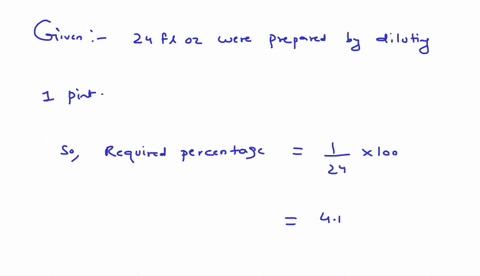 Given :- 24 fl oz were prepared by diluting
1 pint.
So, Required percentage = 1/24 × 100
= 4.1